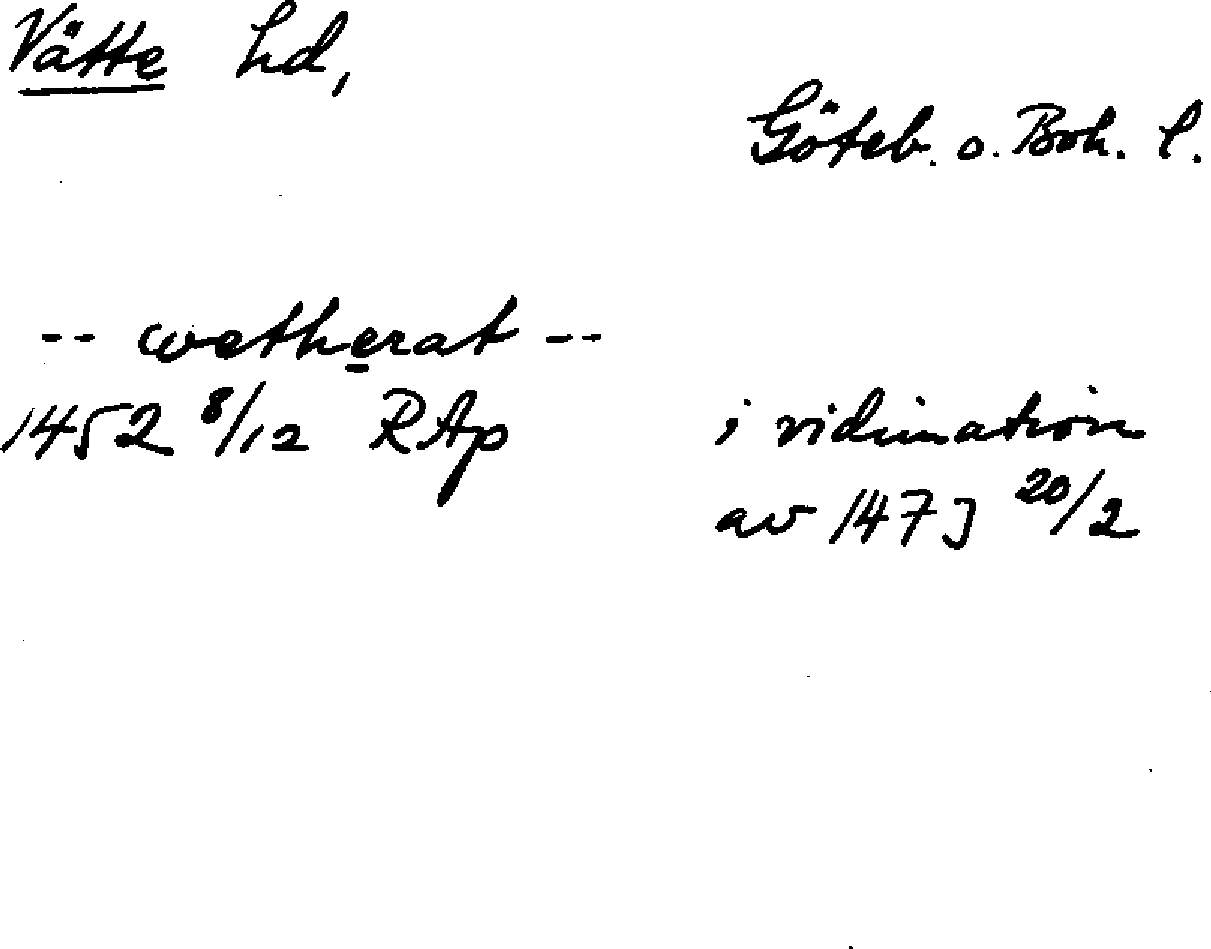 Vätte hd,
Göteb. o. Boh. l.
-- wetherat --
1452 8/12 RAp
i vidimation
av 1473 20/2